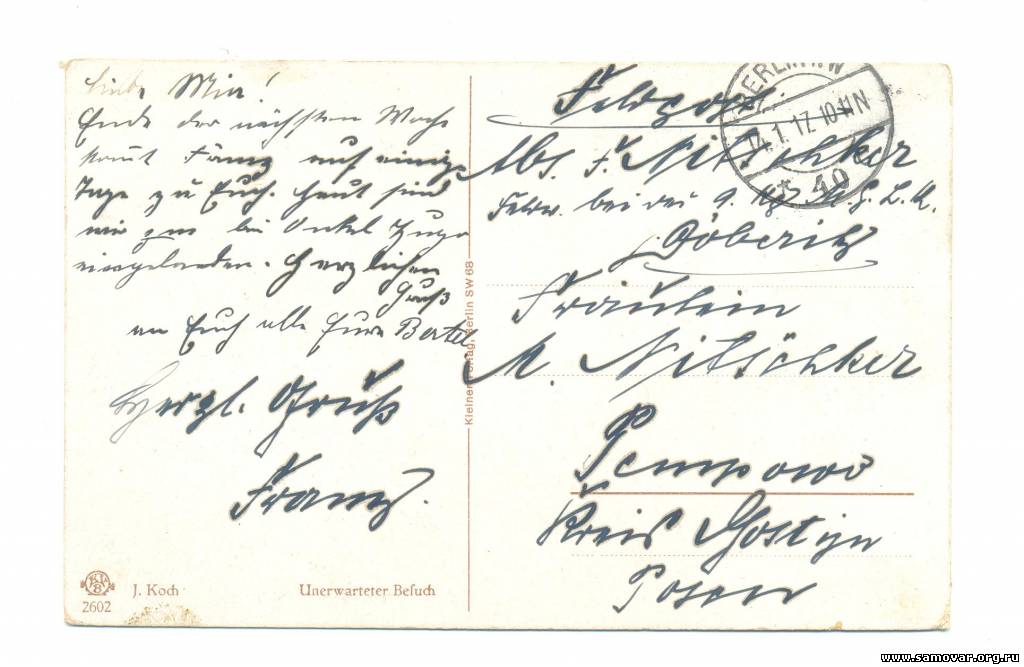 Liebe Mia!
Ende der nächsten Woche
kommt Franz auf einige
Tage zu Euch. Heut sind
wir zu bei Onkel Hugo
eingeladen. Herzlichen
Gruß
an Euch alle Eure Bertel
Herzl. Gruß
Franz.
J. Koch
Unerwarteter Besuch
2602
Kleiner Verlag, Berlin SW 68
BERLIN N.W.
14.1.17. 10-11N
* 40
Feldpost.
Abs. F. Nitschker
Feldw. bei der M. G. L. K.
Döberitz
Fräulein
M. Nitschker
Pempowo
Kreis Gostyn
Posen
www.samovar.org.ru